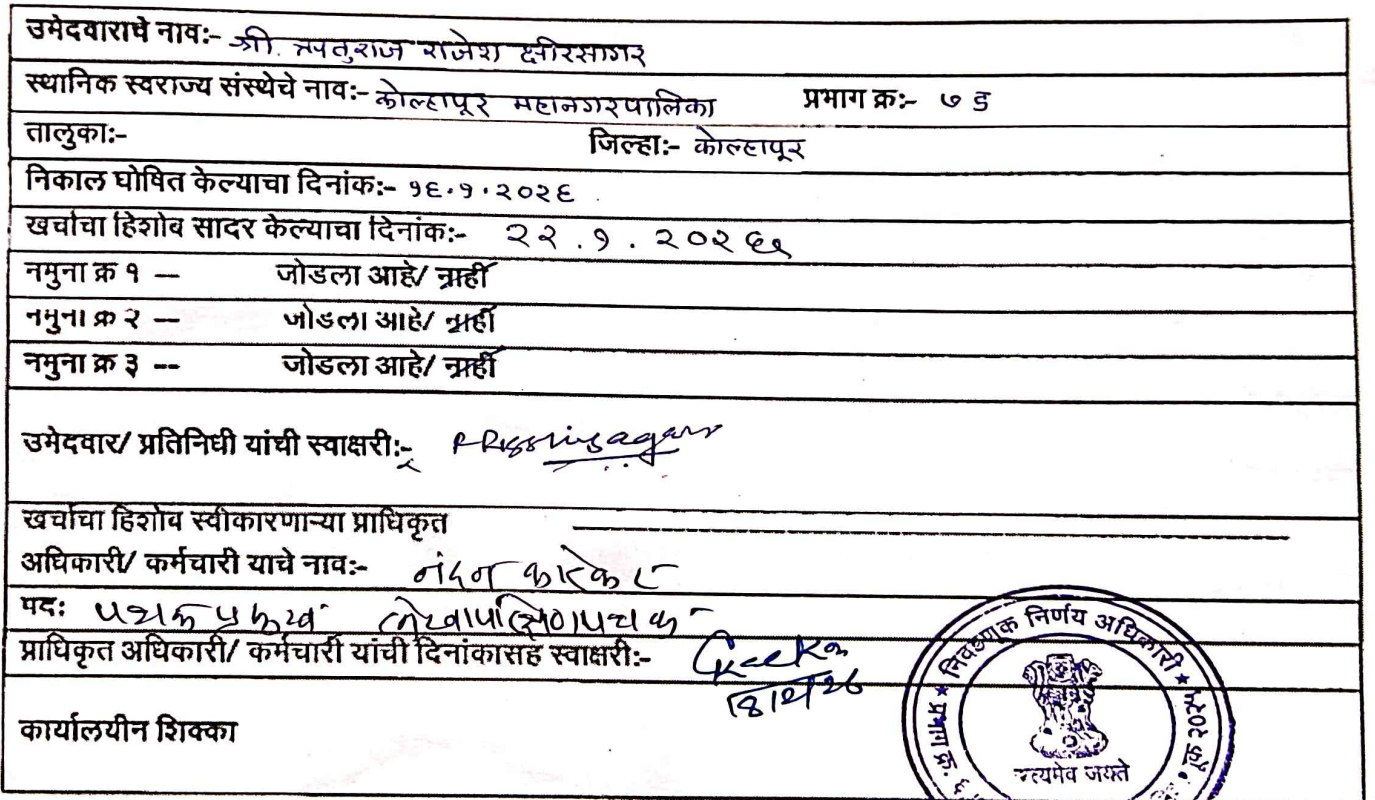 उमेदवाराचे नाव:- श्री. ऋतुराज राजेश क्षीरसागर
स्थानिक स्वराज्य संस्थेचे नाव:- कोल्हापूर महानगरपालिका प्रभाग क्र:- ७ ड
तालुका:- जिल्हा:- कोल्हापूर
निकाल घोषित केल्याचा दिनांक:- १६.१.२०२६
खर्चाचा हिशोब सादर केल्याचा दिनांक:- २२.१.२०२६
नमुना क्र १ — जोडला आहे/ नाही
नमुना क्र २ — जोडला आहे/ नाही
नमुना क्र ३ -- जोडला आहे/ नाही
उमेदवार/ प्रतिनिधी यांची स्वाक्षरी:-
खर्चाचा हिशोब स्वीकारणाऱ्या प्राधिकृत
अधिकारी/ कर्मचारी याचे नाव:- नंदन कारेकर
पदः पथक प्रमुख लेखापरिक्षण पथक
प्राधिकृत अधिकारी/ कर्मचारी यांची दिनांकासह स्वाक्षरी:-
कार्यालयीन शिक्का
★ निवडणूक निर्णय अधिकारी ★
सत्यमेव जयते